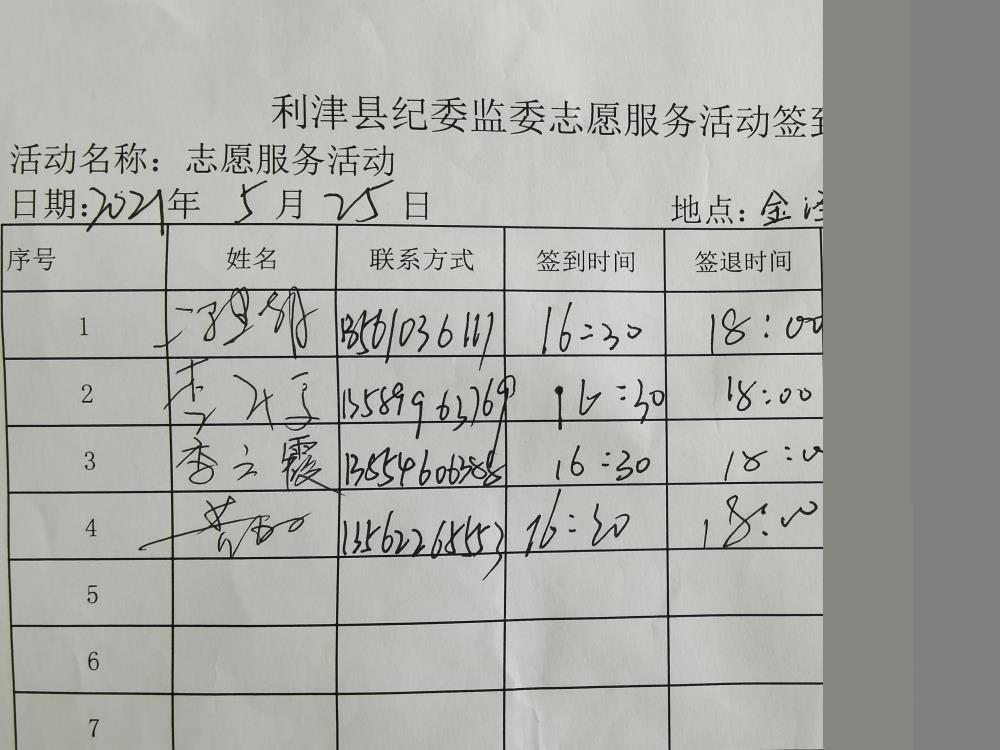 利津县纪委监委志愿服务活动签到
活动名称：志愿服务活动
日期：2021年 5月 25日 地点：金
序号 姓名 联系方式 签到时间 签退时间
1 13561036117 16:30 18:00
2 13589963769 16:30 18:00
3 李云霞 13854606388 16:30 18:0
4 13562268553 16:30 18:00
5
6
7